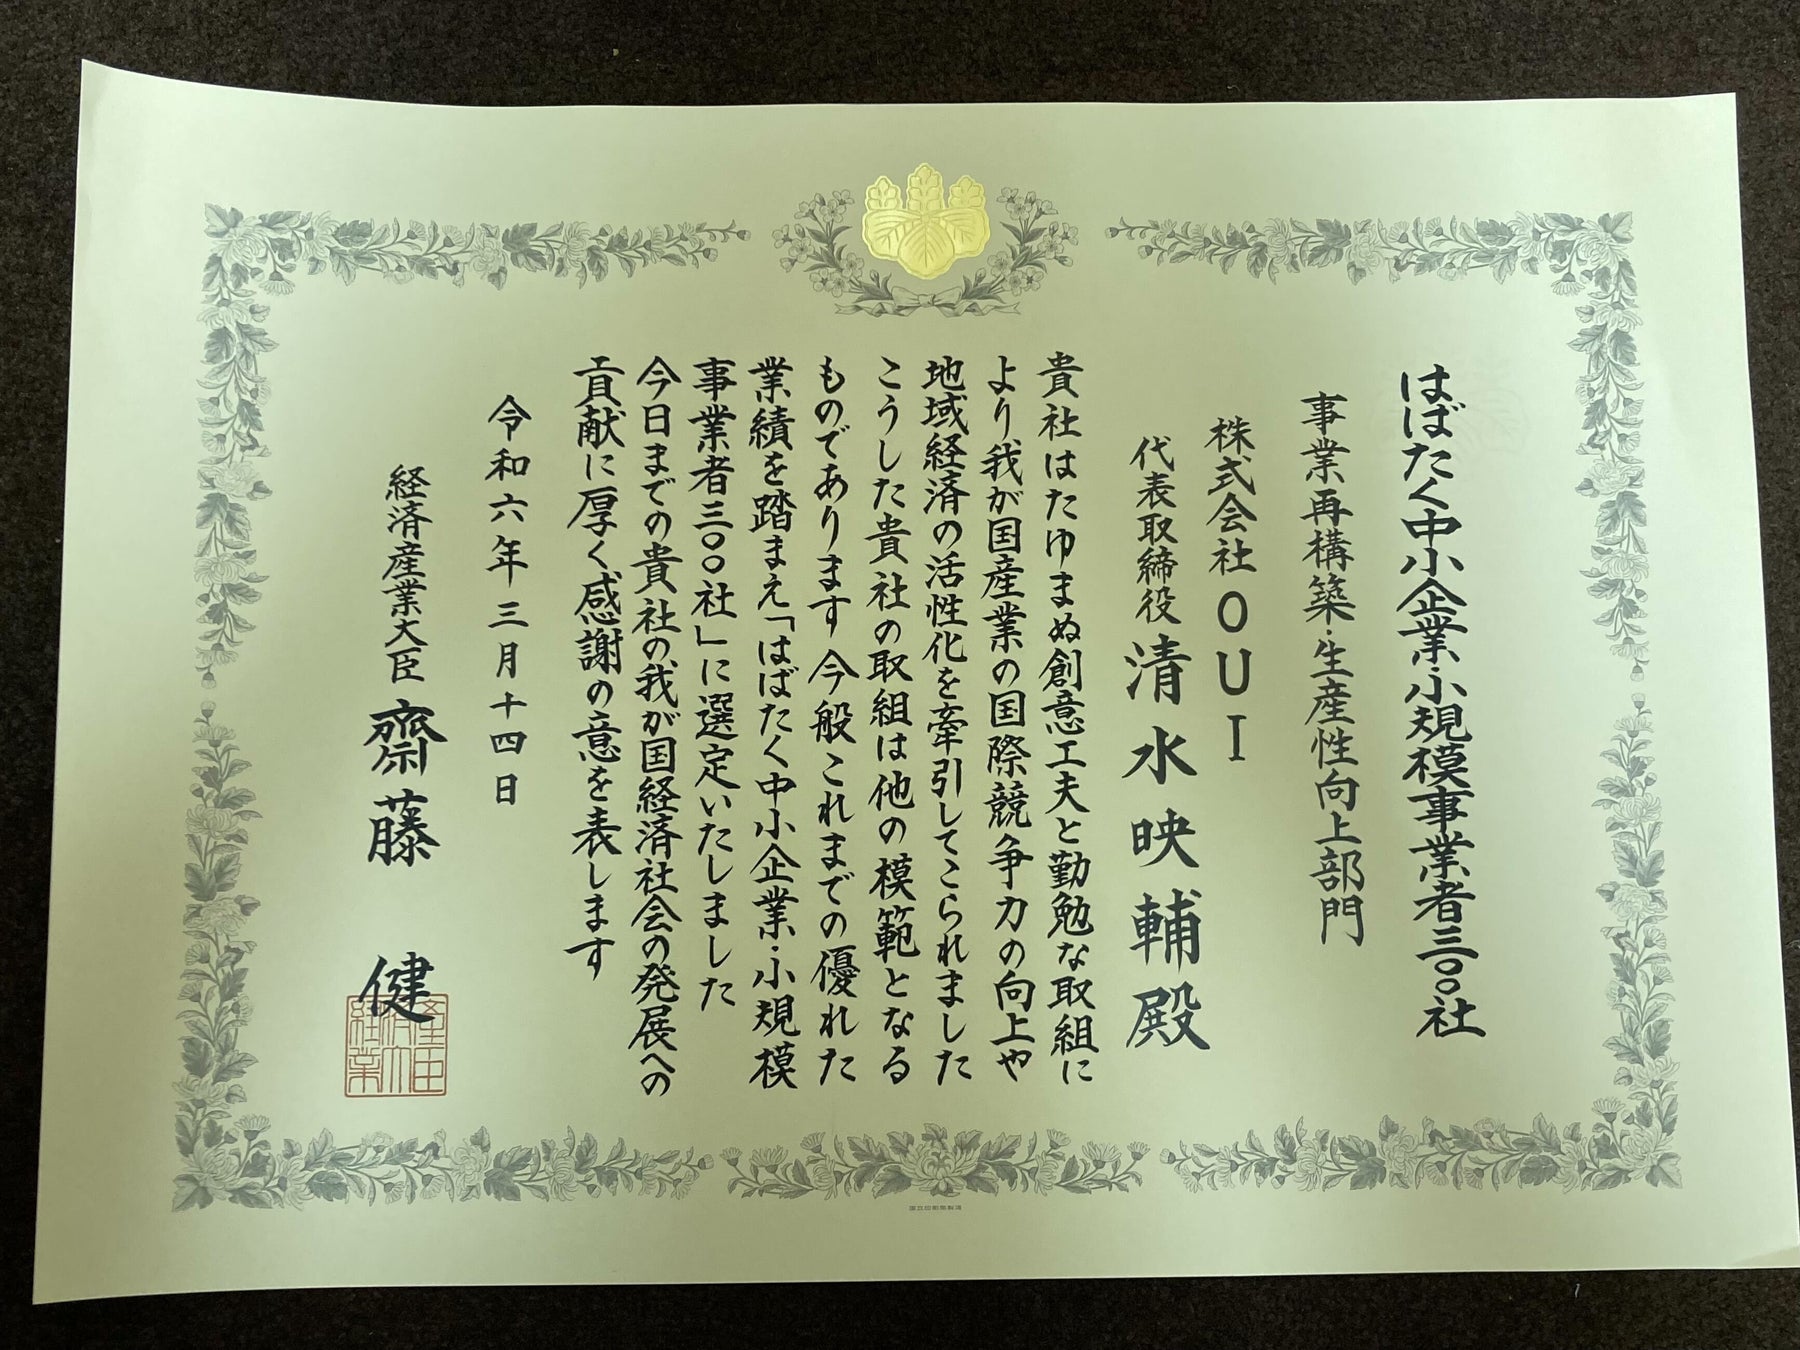 はばたく中小企業・小規模事業者三〇〇社
事業再構築・生産性向上部門
株式会社OUI
代表取締役 清水映輔殿
貴社はたゆまぬ創意工夫と勤勉な取組に
より我が国産業の国際競争力の向上や
地域経済の活性化を牽引してこられました
こうした貴社の取組は他の模範となる
ものであります 今般これまでの優れた
業績を踏まえ「はばたく中小企業・小規模
事業者三〇〇社」に選定いたしました
今日までの貴社の我が国経済社会の発展への
貢献に厚く感謝の意を表します
令和六年三月十四日
経済産業大臣 齋藤 健
国立印刷局製造